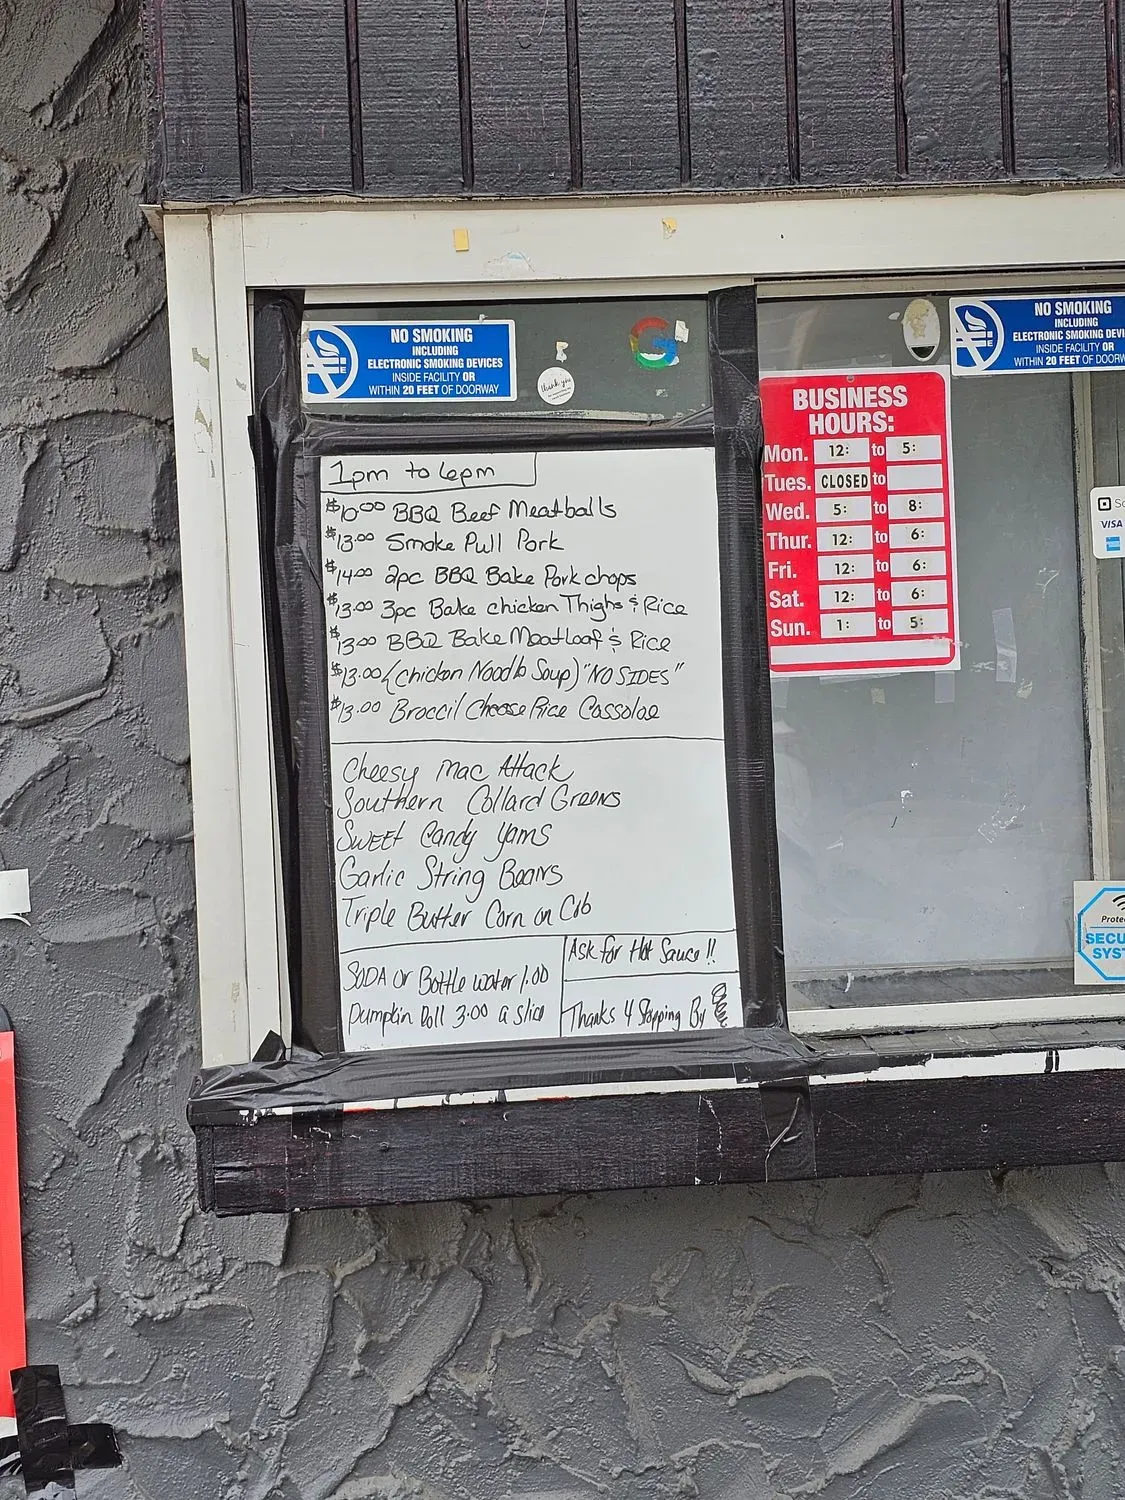 NO SMOKING
INCLUDING
ELECTRONIC SMOKING DEVICES
INSIDE FACILITY OR
WITHIN 20 FEET OF DOORWAY
thank you
1pm to 6pm
$10.00 BBQ Beef Meatballs
$13.00 Smoke Pull Pork
$14.00 2pc BBQ Bake Pork chops
$13.00 3pc Bake chicken Thighs & Rice
$13.00 BBQ Bake Meatloaf & Rice
$13.00 (Chicken Noodle Soup) "NO SIDES"
$13.00 Broccil Cheese Rice Cassolae
Cheesy Mac Attack
Southern Collard Greens
SWEET Candy yams
Garlic String Beans
Triple Butter Corn on Cob
SODA or Bottle water 1.00
Pumpkin Roll 3.00 a slice
Ask for Hot Sauce !!
Thanks 4 Stopping By
NO SMOKING
INCLUDING
ELECTRONIC SMOKING DEV
INSIDE FACILITY OR
WITHIN 20 FEET OF DOORW
BUSINESS
HOURS:
Mon. 12: to 5:
Tues. CLOSED to
Wed. 5: to 8:
Thur. 12: to 6:
Fri. 12: to 6:
Sat. 12: to 6:
Sun. 1: to 5:
VISA
Prote
SECU
SYST